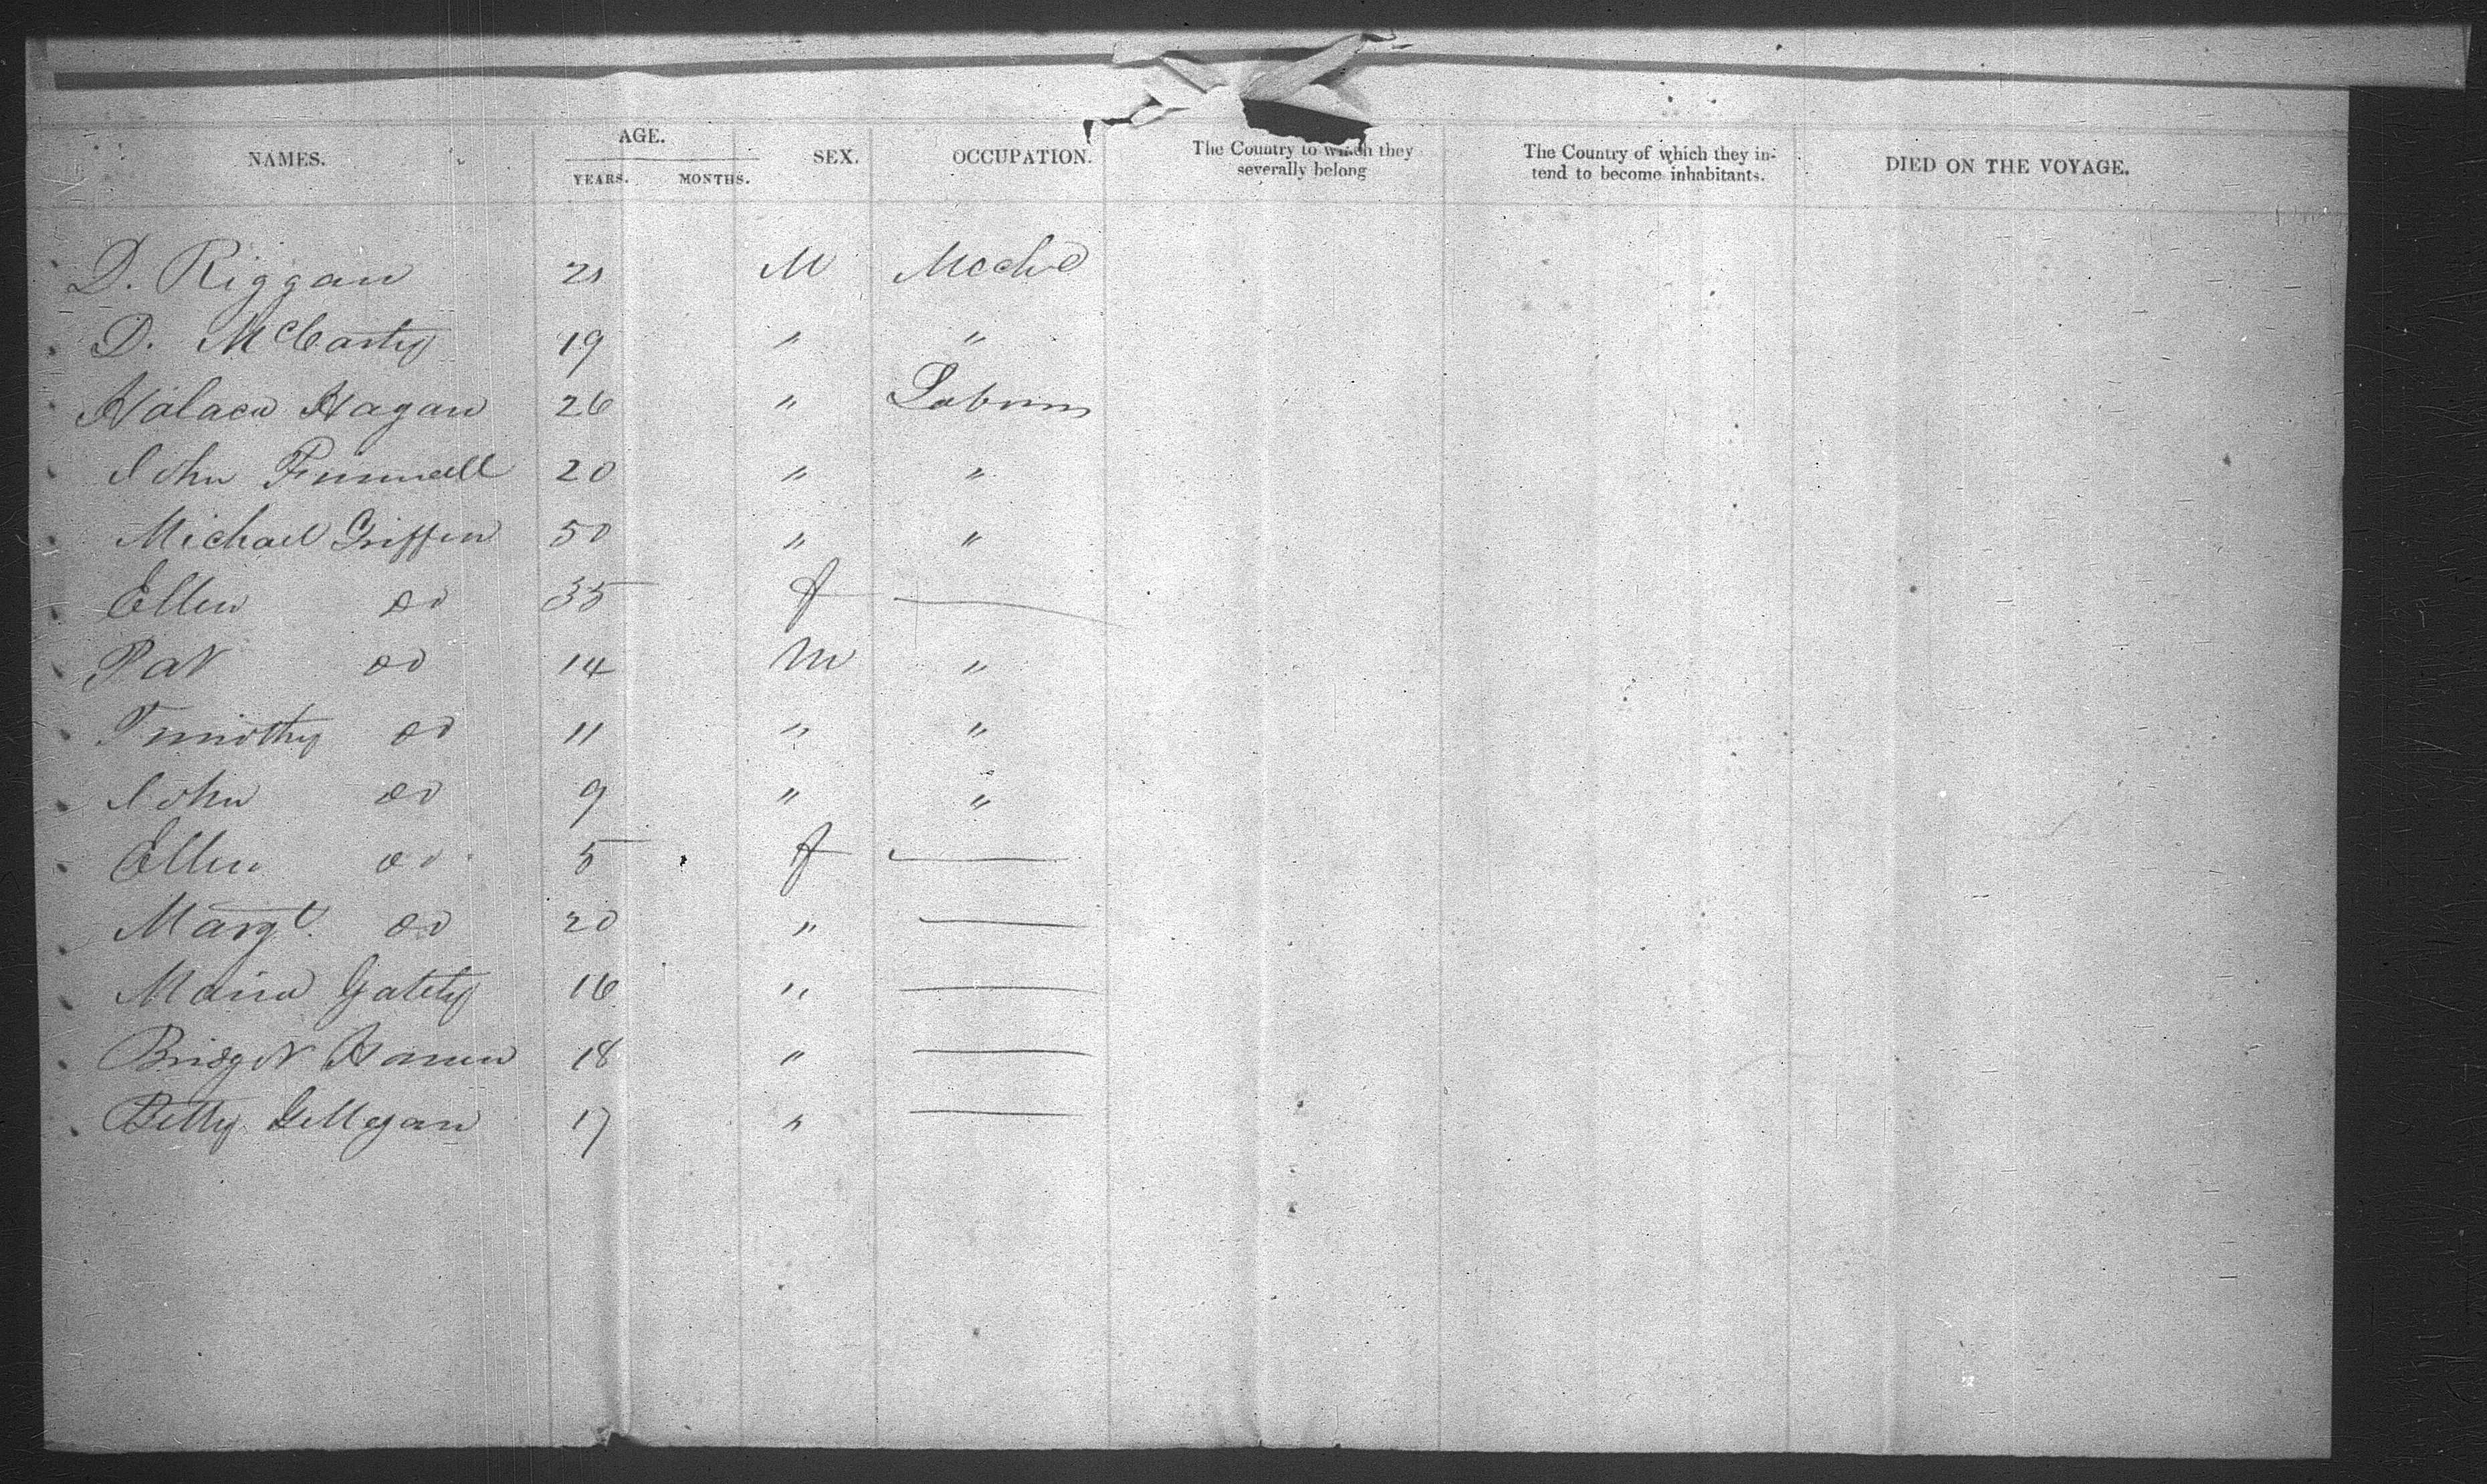 NAMES. AGE. YEARS. MONTHS. SEX. OCCUPATION. The Country to which they severally belong The Country of which they intend to become inhabitants. DIED ON THE VOYAGE.
D. Riggan 21 M Mech
D. McCarty 19 " "
Hagan 26 "
John 20 " "
Michael Griffin 50 " "
Ellen do 35 f —
Pat do 14 M "
Timothy do 11 " "
John do 9 " "
Ellen do 5 f —
Margt. do 20 " —
Maria Gatety 16 " —
Bridget 18 " —
Betty Gellegan 17 " —